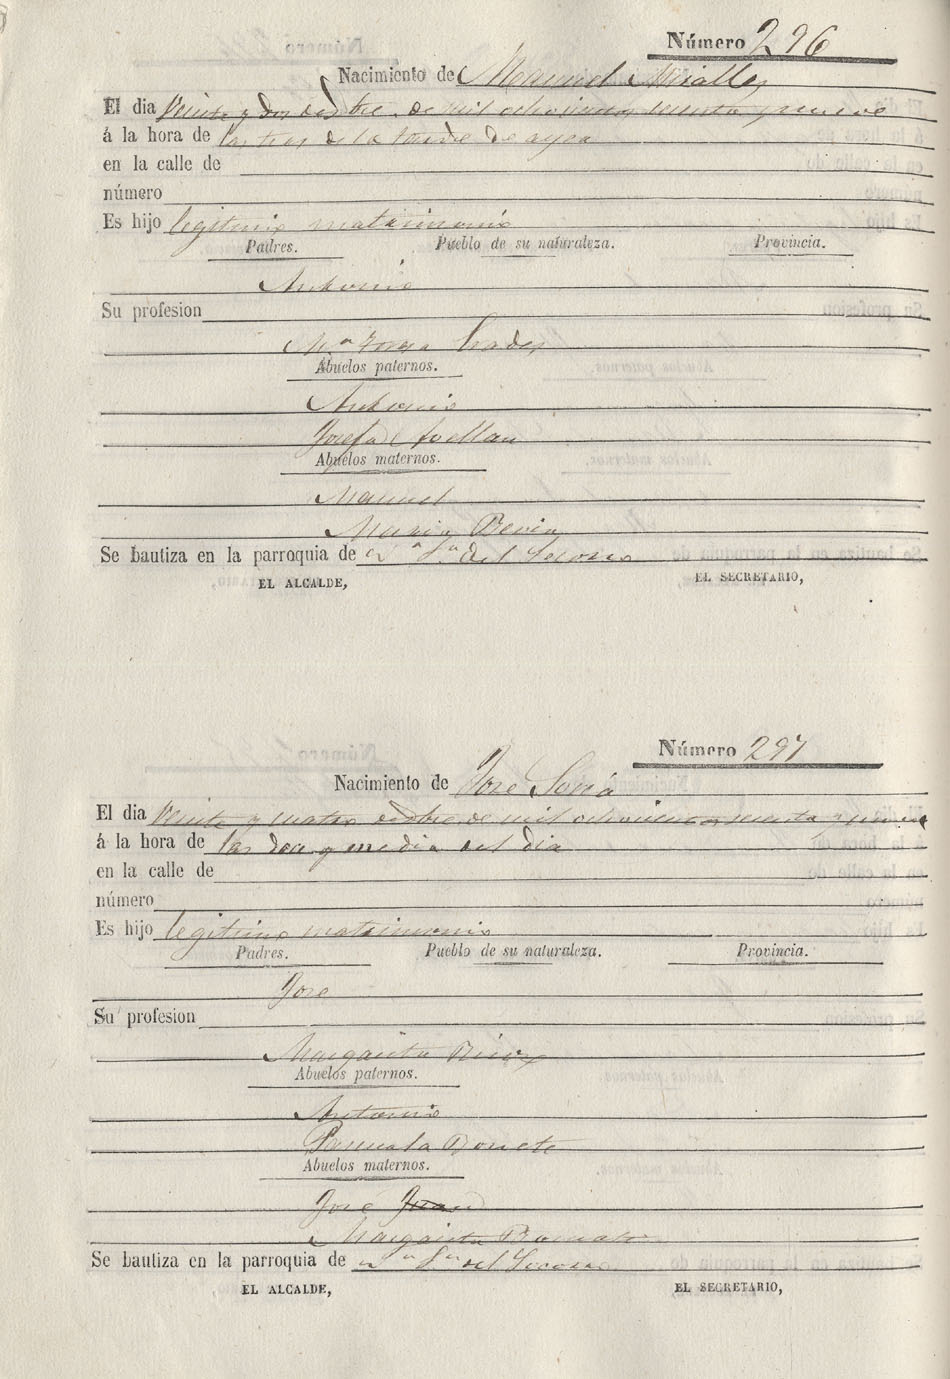 Número 296
Nacimiento de Manuel Miralles
El dia Veinte y dos octbre de mil ochocientos sesenta y nueve
á la hora de las tres de la tarde de ayer
en la calle de
número
Es hijo legitimo matrimonio
Padres. Pueblo de su naturaleza. Provincia.
Antonio
Su profesion
Mª Teresa
Abuelos paternos.
Antonio
Josefa
Abuelos maternos.
Manuel
Maria
Se bautiza en la parroquia de Nª Sª del Socorro
EL ALCALDE, EL SECRETARIO,
Número 297
Nacimiento de José Soria
El dia Veinte y cuatro octbre de mil ochocientos sesenta y nueve
á la hora de las doce y media del dia
en la calle de
número
Es hijo legitimo matrimonio
Padres. Pueblo de su naturaleza. Provincia.
Jose
Su profesion
Margarita
Abuelos paternos.
Antonio
Pascuala Bonete
Abuelos maternos.
José Juan
Margarita
Se bautiza en la parroquia de Nª Sª del Socorro
EL ALCALDE, EL SECRETARIO,